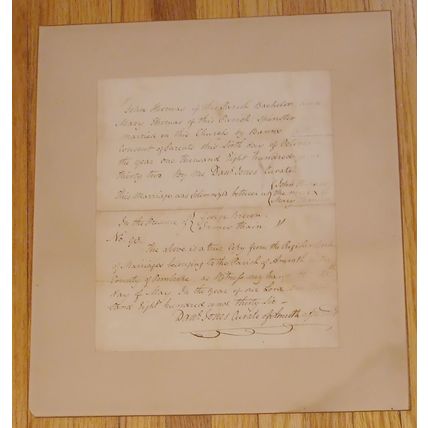 John Thomas of this Parish Bachelor and
Mary Thomas of this Parish Spinster
married in this Church by Banns
Consent of Parents this Sixth day of October
the year one thousand Eight hundred
thirty two By Me Danl Jones Curate
This Marriage was Solemnized between us { John Thomas
Mary Thomas
In the Presence of { George
James
No. 90.
The above is a true Copy from the Register
of Marriages belonging to the Parish of
County of Pembroke as Witness my hand
day of May In the year of our Lord
sand Eight hundred and thirty Six
Danl Jones Curate of